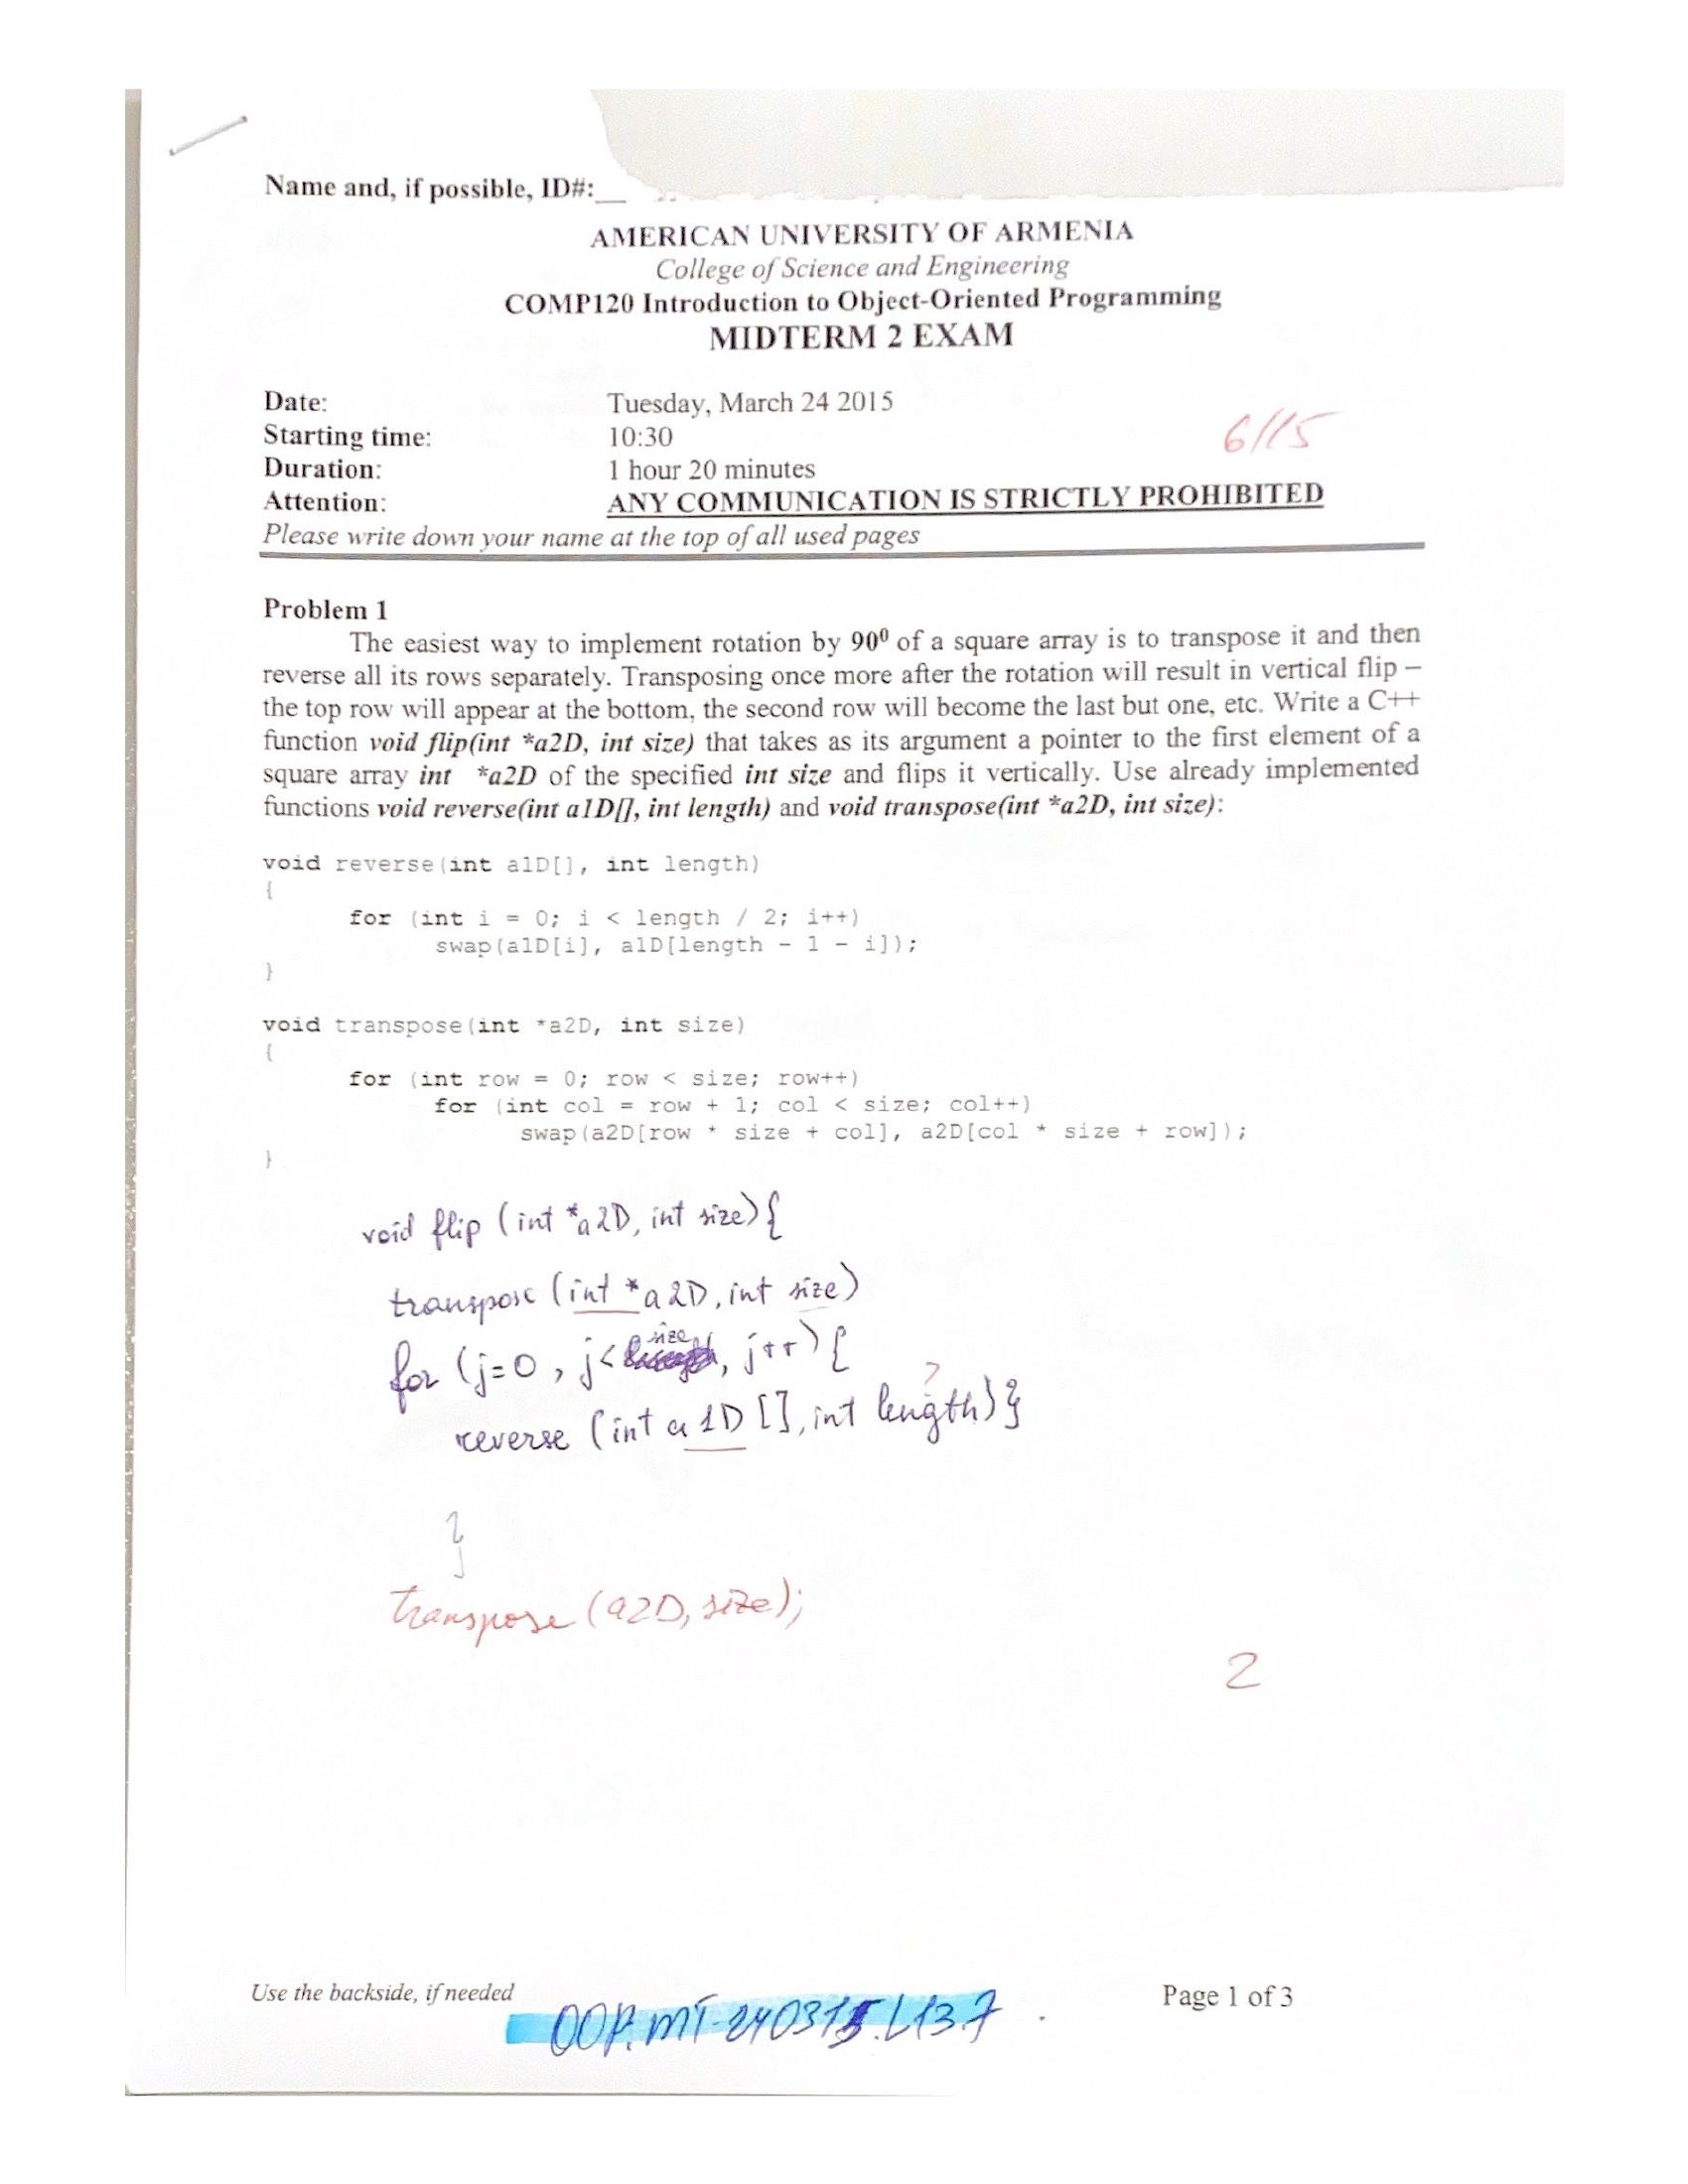 Name and, if possible, ID#:__
AMERICAN UNIVERSITY OF ARMENIA
College of Science and Engineering
COMP120 Introduction to Object-Oriented Programming
MIDTERM 2 EXAM
Date: Tuesday, March 24 2015
6/15
Starting time: 10:30
Duration: 1 hour 20 minutes
Attention: ANY COMMUNICATION IS STRICTLY PROHIBITED
Please write down your name at the top of all used pages
Problem 1
The easiest way to implement rotation by 90⁰ of a square array is to transpose it and then
reverse all its rows separately. Transposing once more after the rotation will result in vertical flip –
the top row will appear at the bottom, the second row will become the last but one, etc. Write a C++
function void flip(int *a2D, int size) that takes as its argument a pointer to the first element of a
square array int *a2D of the specified int size and flips it vertically. Use already implemented
functions void reverse(int a1D[], int length) and void transpose(int *a2D, int size):
void reverse(int a1D[], int length)
{
for (int i = 0; i < length / 2; i++)
swap(a1D[i], a1D[length - 1 - i]);
}
void transpose(int *a2D, int size)
{
for (int row = 0; row < size; row++)
for (int col = row + 1; col < size; col++)
swap(a2D[row * size + col], a2D[col * size + row]);
}
void flip (int *a2D, int size){
transpose (int *a2D, int size)
for (j=0, j<size, j++){
?
reverse (int a1D[], int length)}
}
transpose (a2D, size);
2
Use the backside, if needed
Page 1 of 3
OOP.MT-240315.L13.7